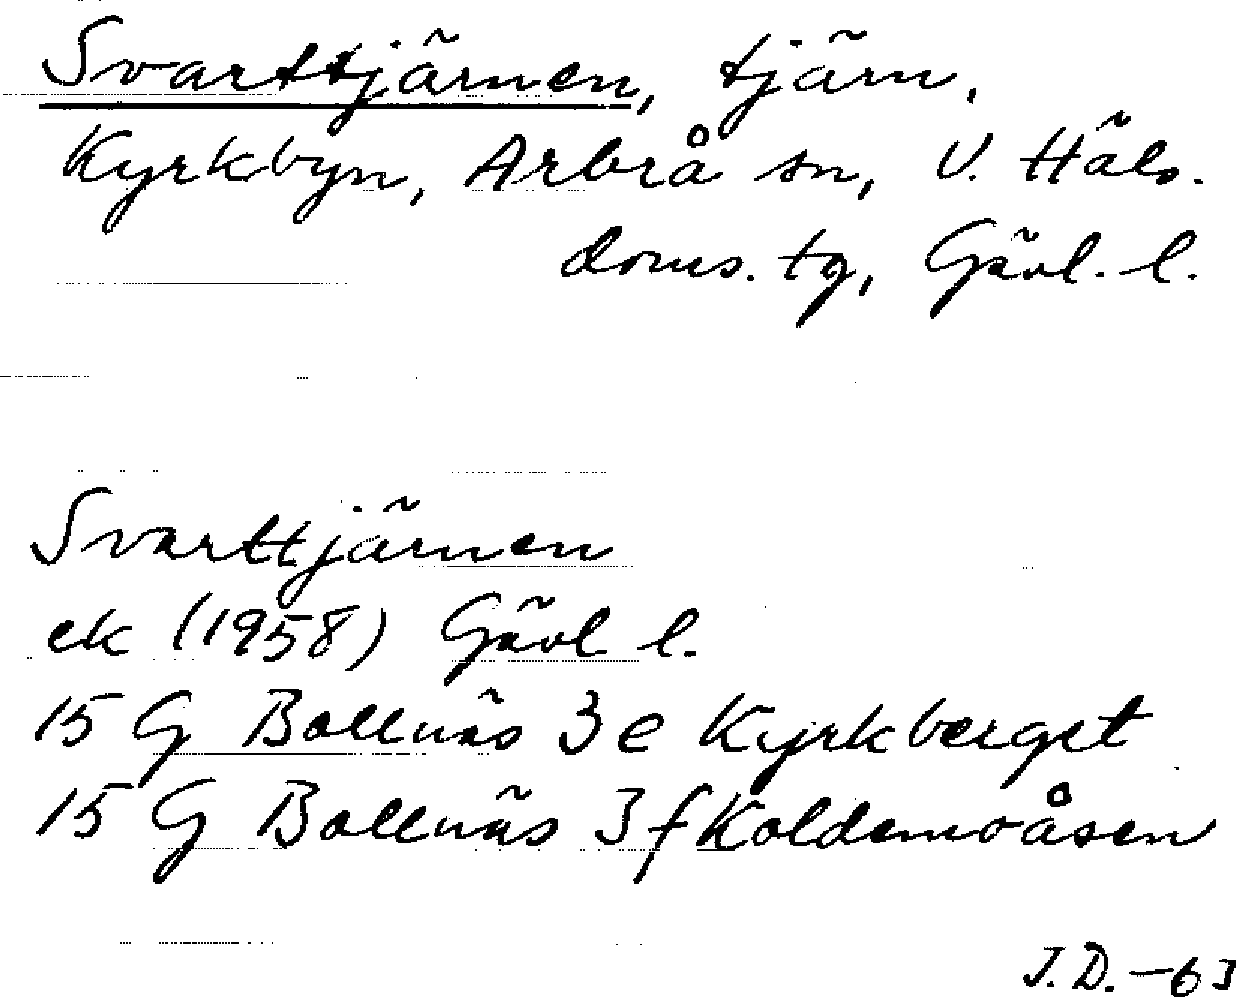 Svarttjärnen, tjärn.
Kyrkbyn, Arbrå sn, V. Häls.
doms. tg, Gävl. l.
Svarttjärnen
ek (1958) Gävl l.
15 G Bollnäs 3 e Kyrkberget
15 G Bollnäs 3 f Koldemoåsen
J.D. -63